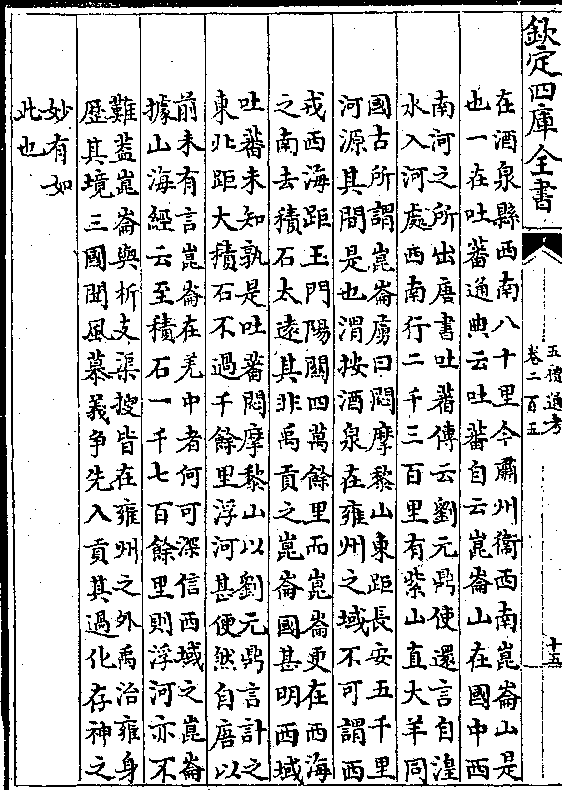 欽定四庫全書
五禮通考
卷二百五
十五
在酒泉縣西南八十里今肅州衛西南崑崙山是
也一在吐蕃通典云吐蕃自云崑崙山在國中西
南河之所出唐書吐蕃傳云劉元鼎使還言自湟
水入河處西南行二千三百里有紫山直大羊同
國古所謂崑崙虜曰悶摩黎山東距長安五千里
河源其間是也渭按酒泉在雍州之域不可謂西
戎西海距玉門陽關四萬餘里而崑崙更在西海
之南去積石太逺其非禹貢之崑崙國甚明西域
吐蕃未知孰是吐蕃悶摩黎山以劉元鼎言計之
東北距大積石不過千餘里浮河甚便然自唐以
前未有言崑崙在羌中者何可深信西域之崑崙
據山海經云至積石一千七百餘里則浮河亦不
難葢崑崙與析支渠搜皆在雍州之外禹治雍身
歴其境三國聞風慕義爭先入貢其過化存神之
妙有如
此也